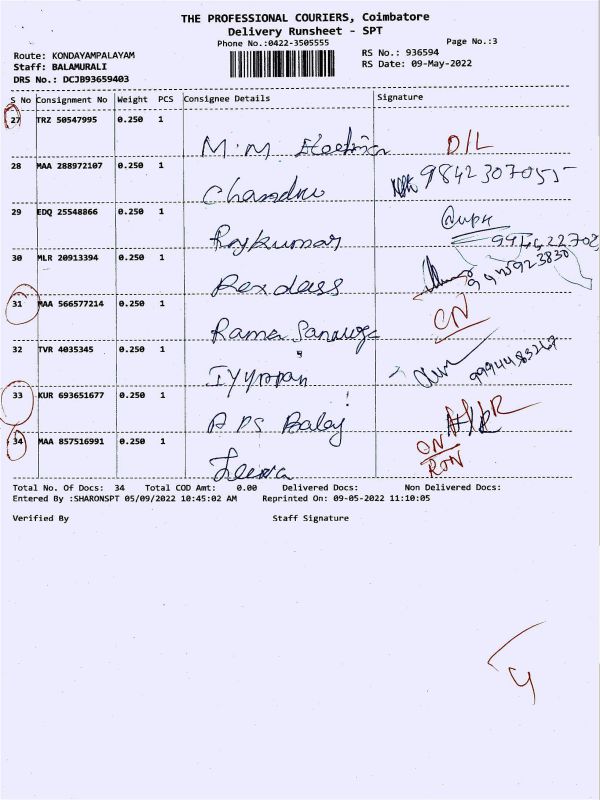 THE PROFESSIONAL COURIERS, Coimbatore
Delivery Runsheet - SPT
Phone No.:0422-3505555
Page No.:3
Route: KONDAYAMPALAYAM
RS No.: 936594
Staff: BALAMURALI
RS Date: 09-May-2022
DRS No.: DCJB93659403
S No Consignment No Weight PCS Consignee Details Signature
27 TRZ 50547995 0.250 1
M.M D/L
28 MAA 288972107 0.250 1
Chandru 9842307055
29 EDQ 25548866 0.250 1
Rajkumar
30 MLR 20913394 0.250 1
Rexdass
31 MAA 566577214 0.250 1
Rama CN
32 TVR 4035345 0.250 1
Iyyppan
33 KUR 693651677 0.250 1
34 MAA 857516991 0.250 1
Total No. Of Docs: 34 Total COD Amt: 0.00 Delivered Docs: Non Delivered Docs:
Entered By :SHARONSPT 05/09/2022 10:45:02 AM Reprinted On: 09-05-2022 11:10:05
Verified By Staff Signature
4